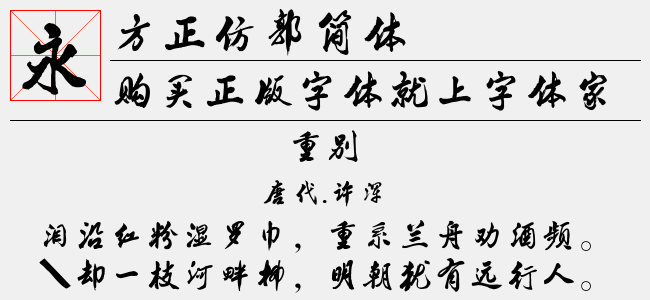 永
方正仿郭简体
购买正版字体就上字体家
重别
唐代.许浑
泪沿红粉湿罗巾，重系兰舟劝酒频。
\却一枝河畔柳，明朝犹有远行人。